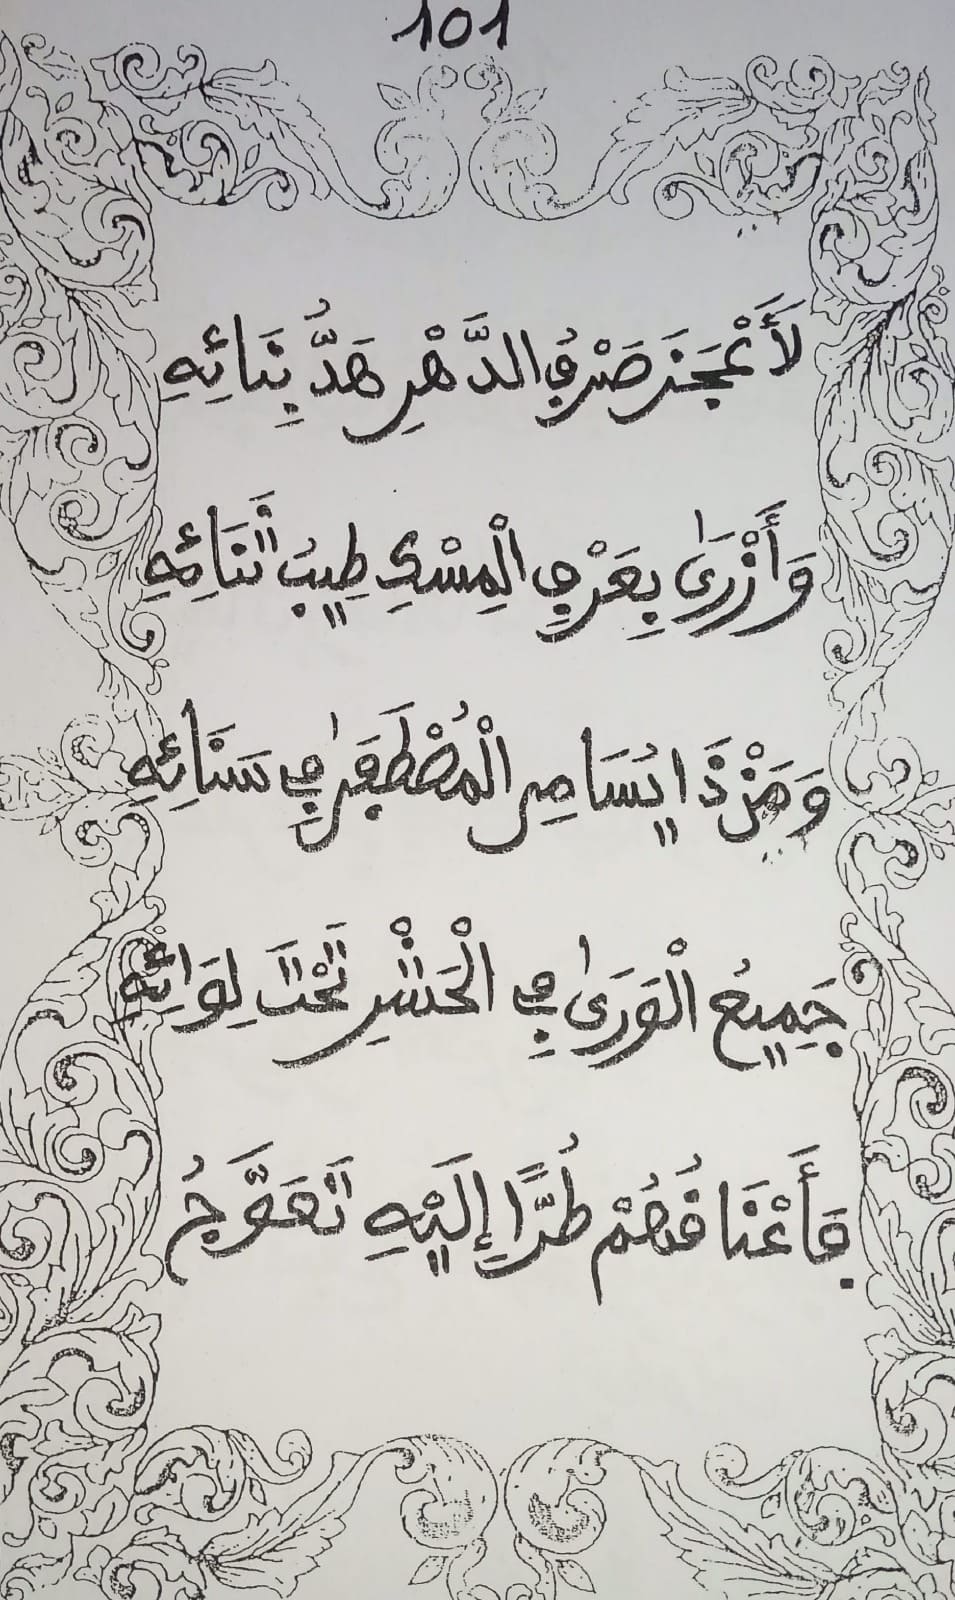 101
لَأَعْجَزَ صَرْفَ الدَّهْرِ هَدُّ بِنَائِهِ
وَأَزْرَىٰ بِعَرْفِ الْمِسْكِ طِيبُ ثَنَائِهِ
وَمَنْ ذَا يُسَامِي الْمُصْطَفَىٰ فِي سَنَائِهِ
جَمِيعُ الْوَرَىٰ فِي الْحَشْرِ تَحْتَ لِوَائِهِ
فَأَعْنَاقُهُمْ طُرًّا إِلَيْهِ تَعَوَّجُ